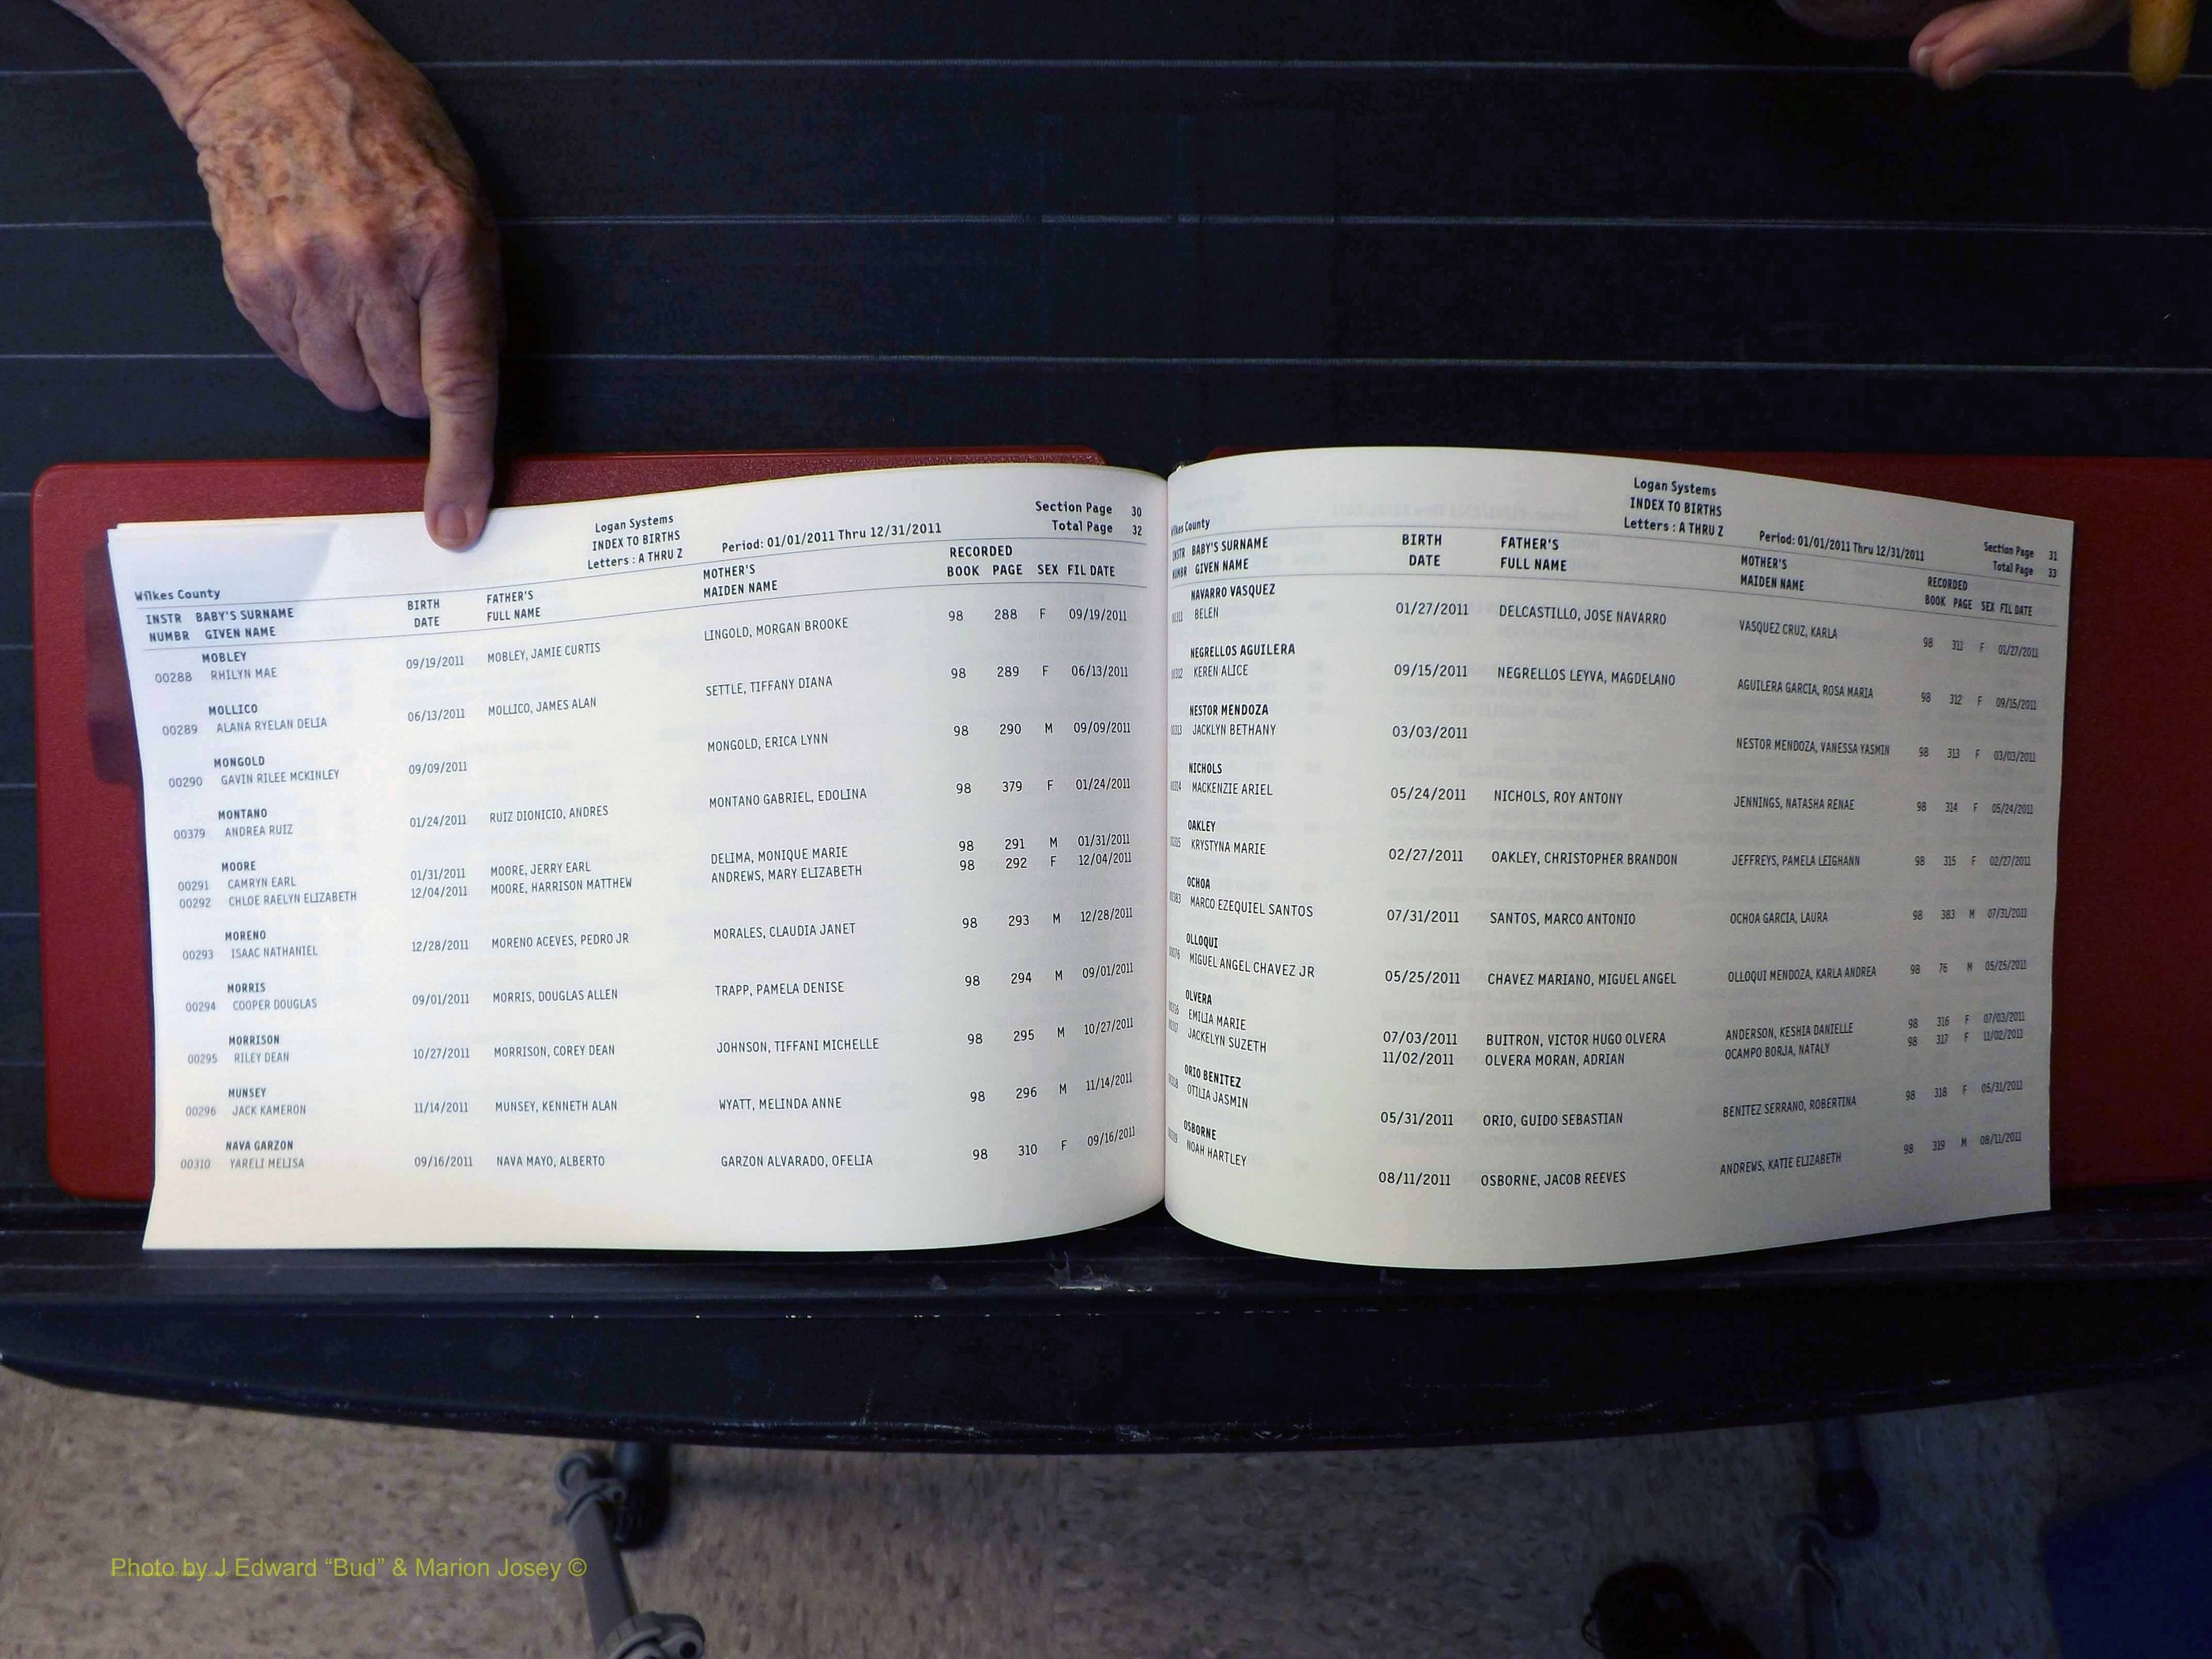 Logan Systems
INDEX TO BIRTHS
Letters : A THRU Z
Period: 01/01/2011 Thru 12/31/2011
Section Page 30
Total Page 32
Wilkes County
INSTR BABY'S SURNAME BIRTH FATHER'S MOTHER'S RECORDED
NUMBR GIVEN NAME DATE FULL NAME MAIDEN NAME BOOK PAGE SEX FIL DATE
MOBLEY
00288 RHILYN MAE 09/19/2011 MOBLEY, JAMIE CURTIS LINGOLD, MORGAN BROOKE 98 288 F 09/19/2011
MOLLICO
00289 ALANA RYELAN DELIA 06/13/2011 MOLLICO, JAMES ALAN SETTLE, TIFFANY DIANA 98 289 F 06/13/2011
MONGOLD
00290 GAVIN RILEE MCKINLEY 09/09/2011 MONGOLD, ERICA LYNN 98 290 M 09/09/2011
MONTANO
00379 ANDREA RUIZ 01/24/2011 RUIZ DIONICIO, ANDRES MONTANO GABRIEL, EDOLINA 98 379 F 01/24/2011
MOORE
00291 CAMRYN EARL 01/31/2011 MOORE, JERRY EARL DELIMA, MONIQUE MARIE 98 291 M 01/31/2011
00292 CHLOE RAELYN ELIZABETH 12/04/2011 MOORE, HARRISON MATTHEW ANDREWS, MARY ELIZABETH 98 292 F 12/04/2011
MORENO
00293 ISAAC NATHANIEL 12/28/2011 MORENO ACEVES, PEDRO JR MORALES, CLAUDIA JANET 98 293 M 12/28/2011
MORRIS
00294 COOPER DOUGLAS 09/01/2011 MORRIS, DOUGLAS ALLEN TRAPP, PAMELA DENISE 98 294 M 09/01/2011
MORRISON
00295 RILEY DEAN 10/27/2011 MORRISON, COREY DEAN JOHNSON, TIFFANI MICHELLE 98 295 M 10/27/2011
MUNSEY
00296 JACK KAMERON 11/14/2011 MUNSEY, KENNETH ALAN WYATT, MELINDA ANNE 98 296 M 11/14/2011
NAVA GARZON
00310 YARELI MELISA 09/16/2011 NAVA MAYO, ALBERTO GARZON ALVARADO, OFELIA 98 310 F 09/16/2011
Logan Systems
INDEX TO BIRTHS
Letters : A THRU Z
Period: 01/01/2011 Thru 12/31/2011
Section Page 31
Total Page 33
Wilkes County
INSTR BABY'S SURNAME BIRTH FATHER'S MOTHER'S RECORDED
NUMBR GIVEN NAME DATE FULL NAME MAIDEN NAME BOOK PAGE SEX FIL DATE
NAVARRO VASQUEZ
BELEN 01/27/2011 DELCASTILLO, JOSE NAVARRO VASQUEZ CRUZ, KARLA 98 311 F 01/27/2011
NEGRELLOS AGUILERA
KEREN ALICE 09/15/2011 NEGRELLOS LEYVA, MAGDELANO AGUILERA GARCIA, ROSA MARIA 98 312 F 09/15/2011
NESTOR MENDOZA
JACKLYN BETHANY 03/03/2011 NESTOR MENDOZA, VANESSA YASMIN 98 313 F 03/03/2011
NICHOLS
MACKENZIE ARIEL 05/24/2011 NICHOLS, ROY ANTONY JENNINGS, NATASHA RENAE 98 314 F 05/24/2011
OAKLEY
KRYSTYNA MARIE 02/27/2011 OAKLEY, CHRISTOPHER BRANDON JEFFREYS, PAMELA LEIGHANN 98 315 F 02/27/2011
OCHOA
MARCO EZEQUIEL SANTOS 07/31/2011 SANTOS, MARCO ANTONIO OCHOA GARCIA, LAURA 98 383 M 07/31/2011
OLLOQUI
MIGUEL ANGEL CHAVEZ JR 05/25/2011 CHAVEZ MARIANO, MIGUEL ANGEL OLLOQUI MENDOZA, KARLA ANDREA 98 76 M 05/25/2011
OLVERA
EMILIA MARIE 07/03/2011 BUITRON, VICTOR HUGO OLVERA ANDERSON, KESHIA DANIELLE 98 316 F 07/03/2011
JACKELYN SUZETH 11/02/2011 OLVERA MORAN, ADRIAN OCAMPO BORJA, NATALY 98 317 F 11/02/2011
ORIO BENITEZ
OTILIA JASMIN 05/31/2011 ORIO, GUIDO SEBASTIAN BENITEZ SERRANO, ROBERTINA 98 318 F 05/31/2011
OSBORNE
NOAH HARTLEY 08/11/2011 OSBORNE, JACOB REEVES ANDREWS, KATIE ELIZABETH 98 319 M 08/11/2011
Photo by J Edward “Bud” & Marion Josey ©